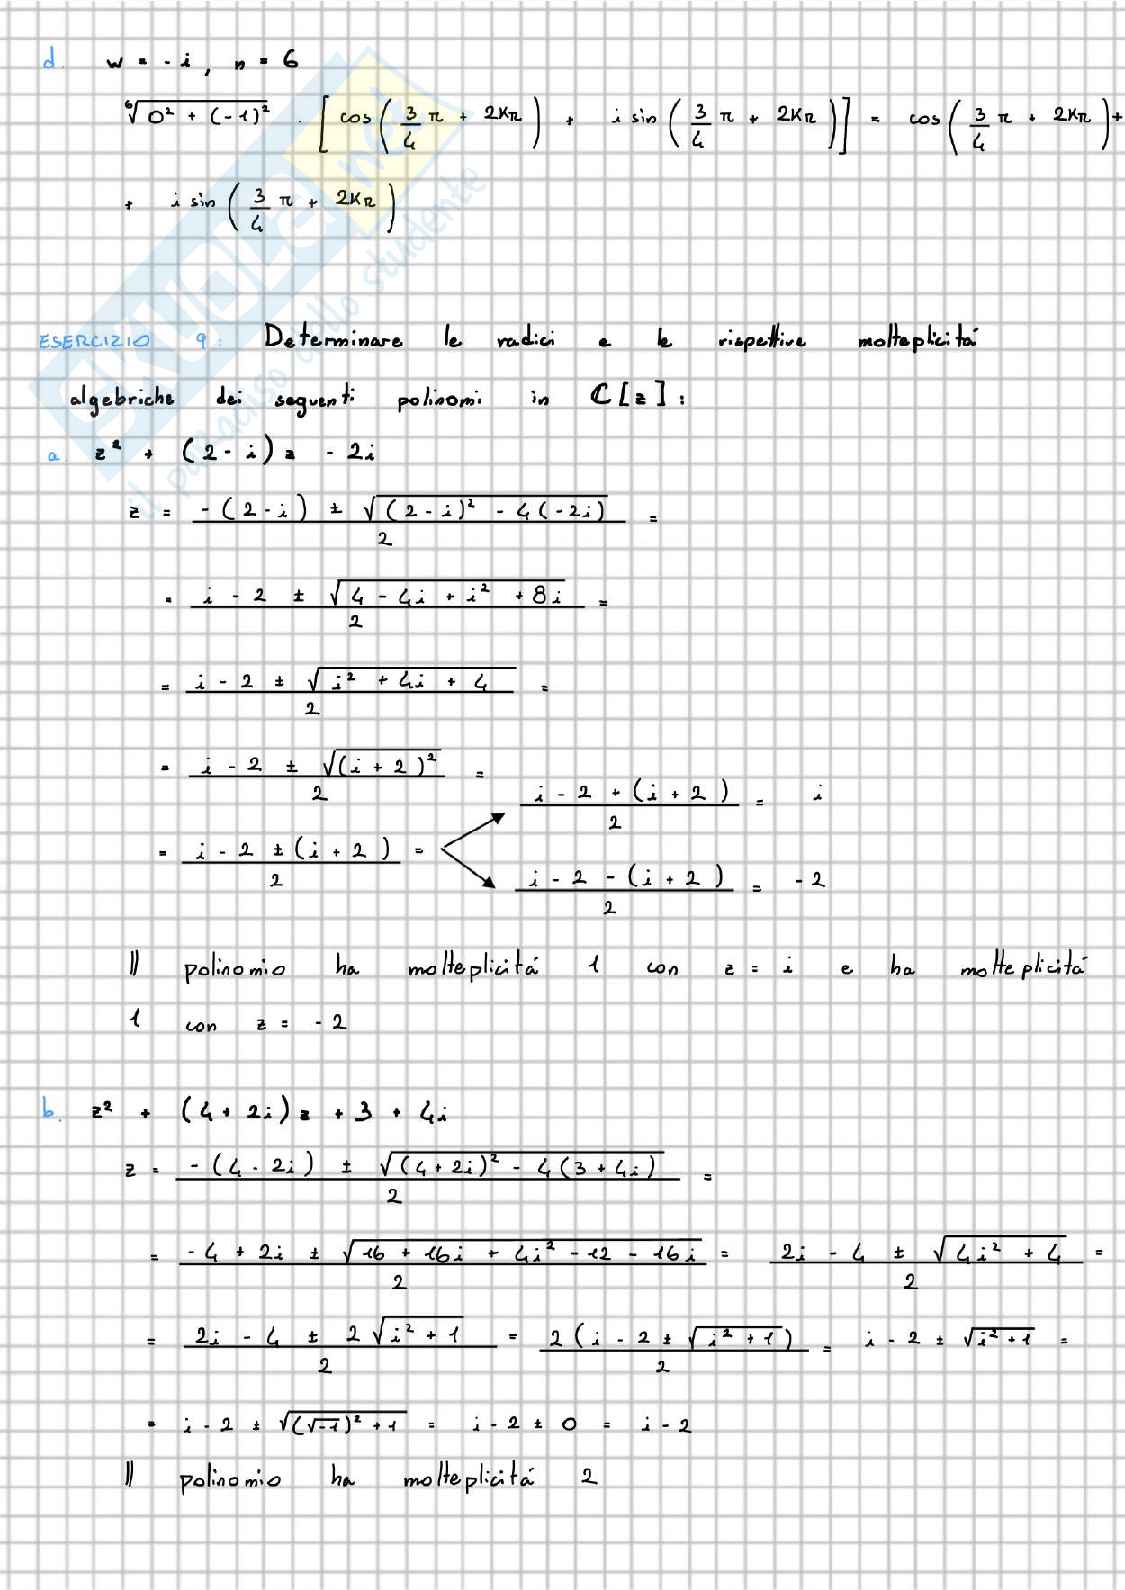 d. w = -i, n = 6
⁶√(0² + (-1)²) · [cos(3/4 π + 2kπ) + i sin(3/4 π + 2kπ)] = cos(3/4 π + 2kπ) +
+ i sin(3/4 π + 2kπ)
ESERCIZIO 9: Determinare le radici e le rispettive molteplicitá
algebriche dei seguenti polinomi in ℂ[z]:
a. z² + (2-i)z - 2i
z = (-(2-i) ± √((2-i)² - 4(-2i)))/2 =
= (i - 2 ± √(4 - 4i + i² + 8i))/2 =
= (i - 2 ± √(i² + 4i + 4))/2 =
= (i - 2 ± √((i+2)²))/2 =
(i - 2 + (i+2))/2 = i
= (i - 2 ± (i+2))/2 =
(i - 2 - (i+2))/2 = -2
Il polinomio ha molteplicitá 1 con z = i e ha molteplicitá
1 con z = -2
b. z² + (4+2i)z + 3 + 4i
z = (-(4-2i) ± √((4+2i)² - 4(3+4i)))/2 =
= (-4 + 2i ± √(16 + 16i + 4i² - 12 - 16i))/2 = (2i - 4 ± √(4i² + 4))/2 =
= (2i - 4 ± 2√(i² + 1))/2 = (2(i - 2 ± √(i² + 1)))/2 = i - 2 ± √(i² + 1) =
= i - 2 ± √((√-1)² + 1) = i - 2 ± 0 = i - 2
Il polinomio ha molteplicitá 2
SKUOLA.net
il paradiso dello studente